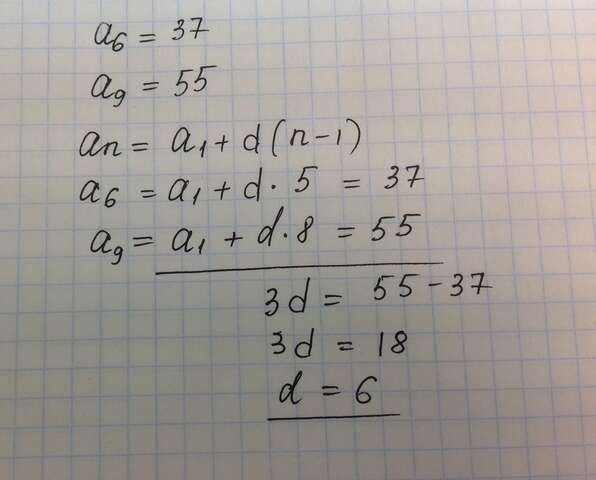 a₆ = 37
a₉ = 55
aₙ = a₁ + d(n-1)
a₆ = a₁ + d · 5 = 37
a₉ = a₁ + d · 8 = 55
3d = 55 - 37
3d = 18
d = 6